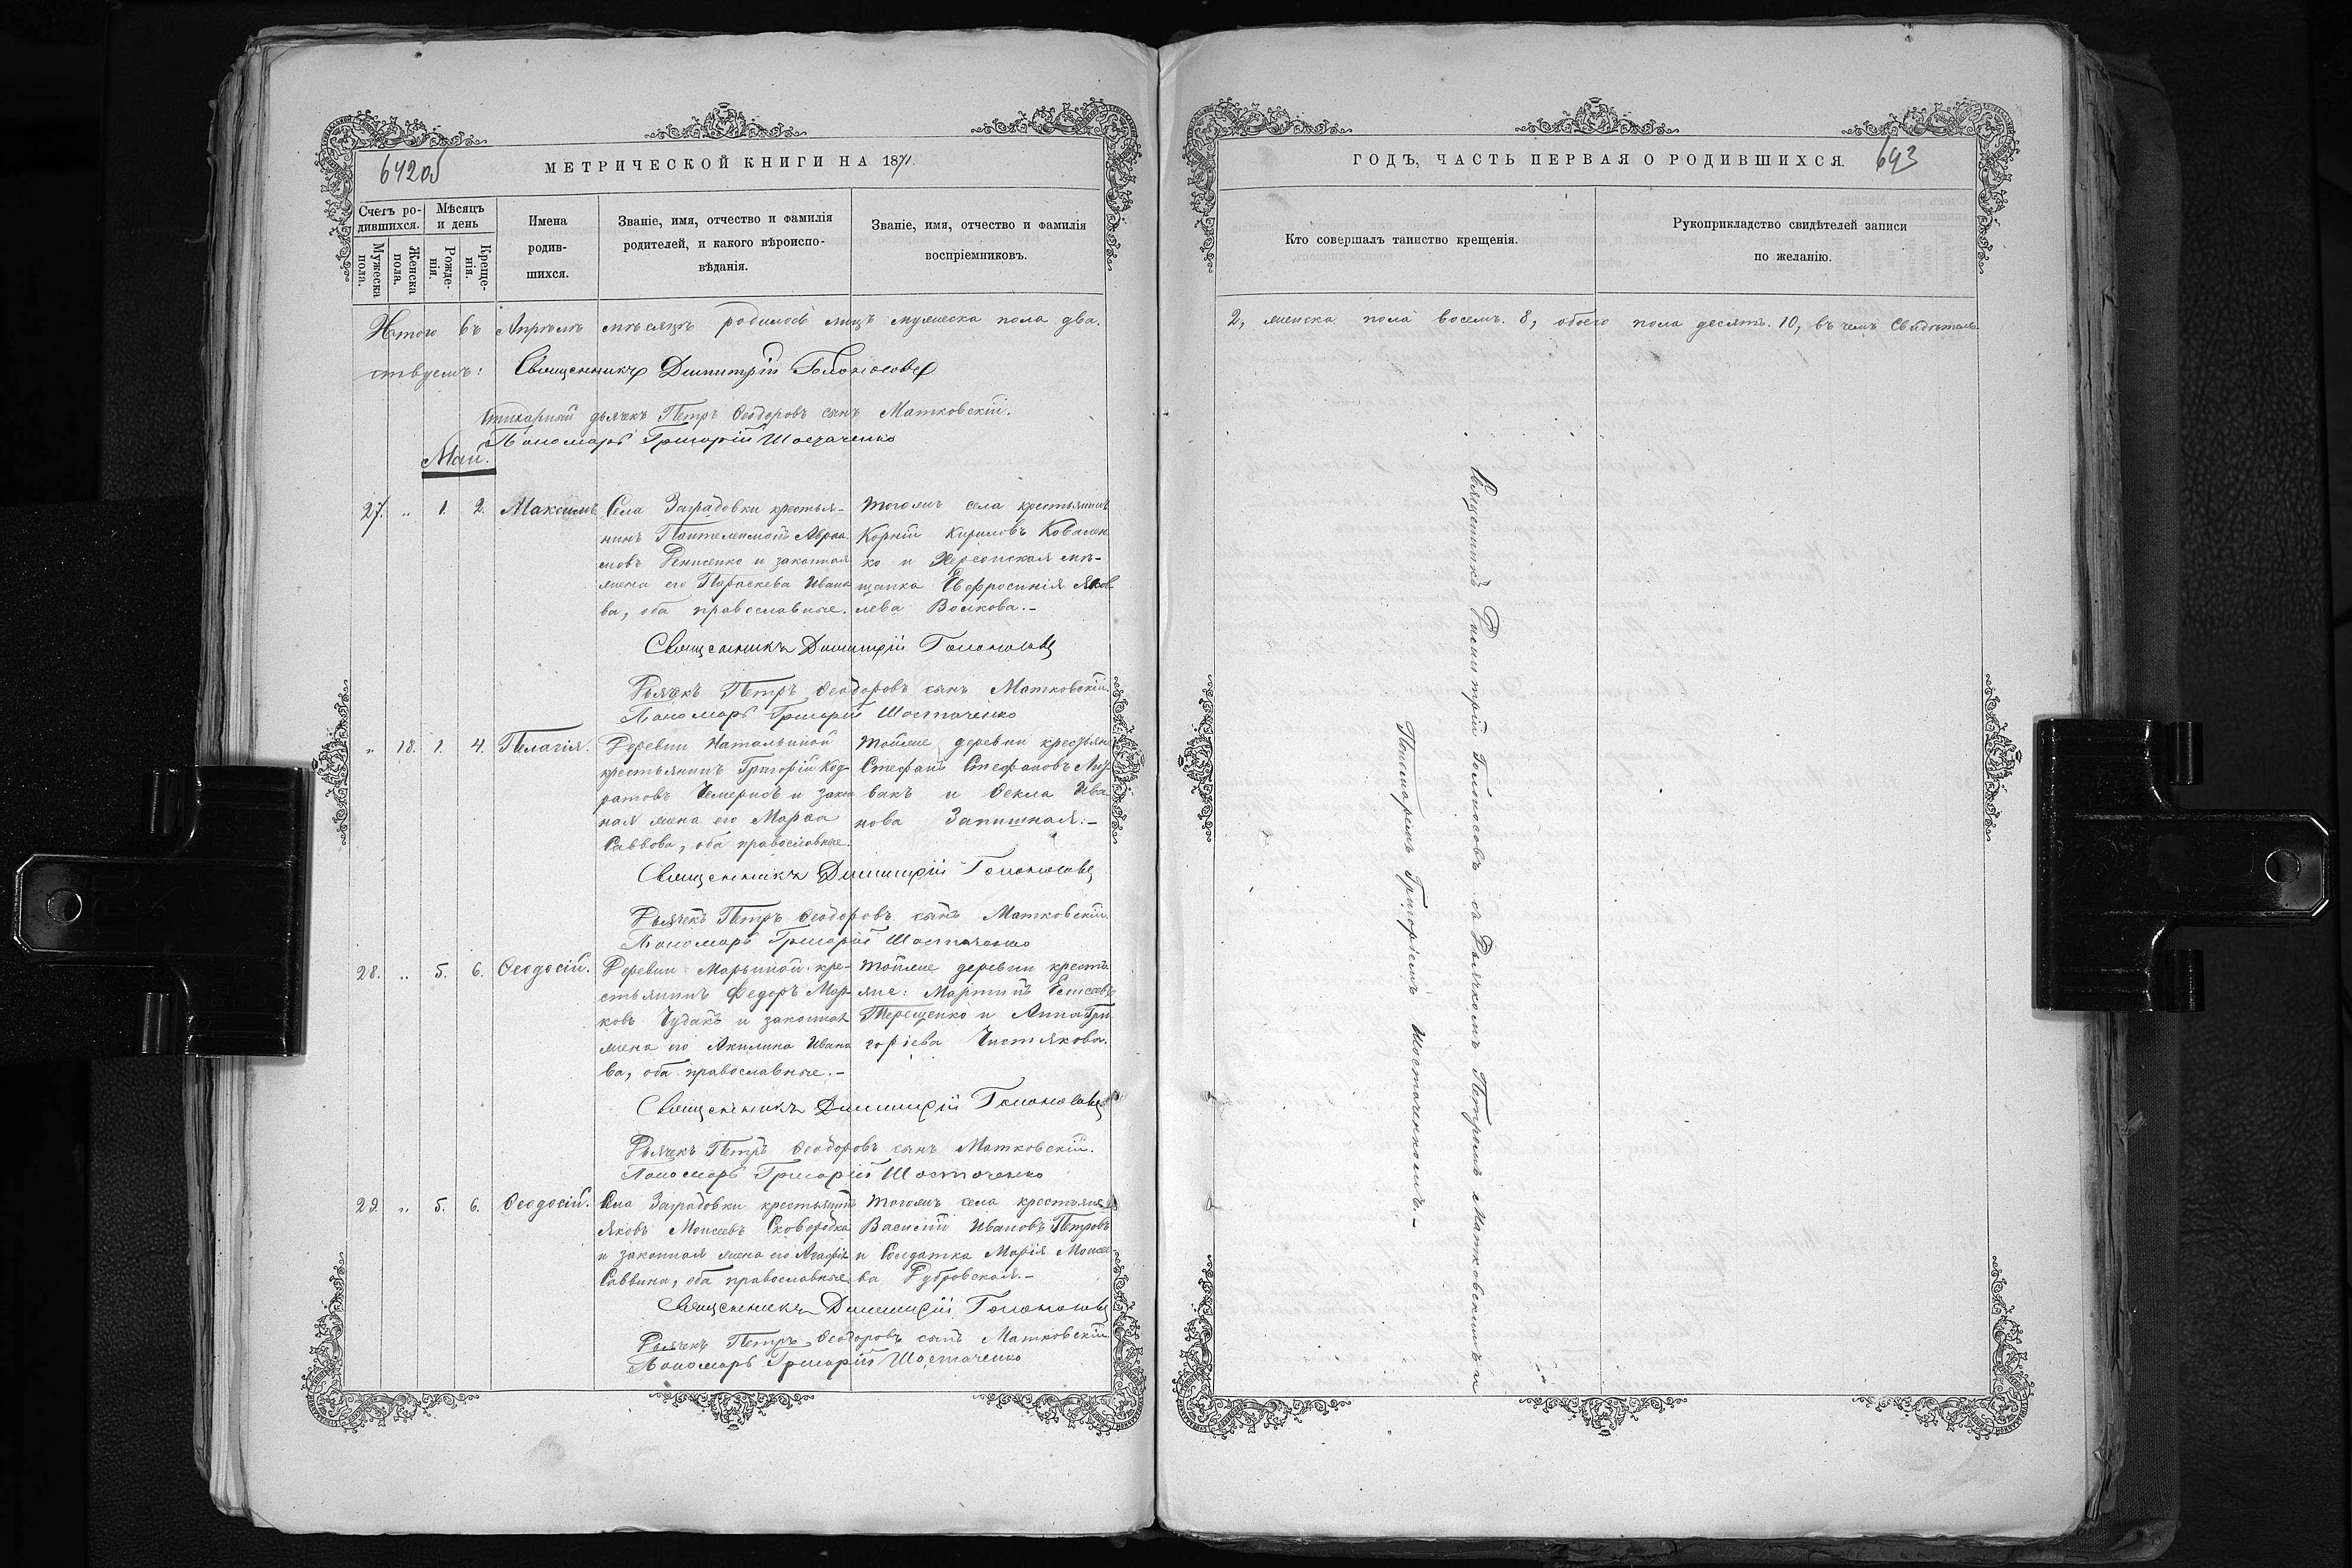 642об
МЕТРИЧЕСКОЙ КНИГИ НА 1871.
Счетъ ро-
дившихся.
Мѣсяцъ
и день
Мужеска
пола.
Женска
пола.
Рожде-
нія.
Креще-
нія.
Имена
родив-
шихся.
Званіе, имя, отчество и фамилія
родителей, и какого вѣроиспо-
вѣданія.
Званіе, имя, отчество и фамилія
воспріемниковъ.
Итого въ Апрѣлѣ мѣсяцѣ родилось лицъ мужеска пола два.
ствуемъ: Священникъ Димитрій Голоносовъ
Стихарный дьячекъ Петръ Ѳеодоровъ сынъ Матковскій.
Пономарь Григорій Шостаченко
Май.
27. „ 1. 2. Максимъ
Села Заградовки крестья-
нинъ Пантелеимонъ Авраа-
мовъ Денисенко и законная
жена его Параскева Ивано-
ва, оба православные.
Тогожъ села крестьянинъ
Корній Кириловъ Ковален
ко и Херсонская мѣ-
щанка Евфросинія Яков
лева Волкова.-
Священникъ Димитрій Голоносовъ
Дьячекъ Петръ Ѳеодоровъ сынъ Матковскій.
Пономарь Григорій Шостаченко
„ 18. 1. 4. Пелагія.
Деревни Натальиной
крестьянинъ Григорій Код-
ратовъ Чемерисъ и закон
ная жена его Марѳа
Саввова, оба православные.
Тойже деревни крестьяне
Стефанъ Стефановъ
и Ѳекла Ива
нова Запишная:-
Священникъ Димитрій Голоносовъ
Дьячекъ Петръ Ѳеодоровъ сынъ Матковскій.
Пономарь Григорій Шостаченко
28. „ 5. 6. Ѳеодосій.
Деревни Марьиной кре-
стьянинъ Федоръ Мар-
ковъ Чудакъ и законная
жена его Акилина Ивано
ва, оба православные.-
Тойже деревни кресть
яне: Мартинъ Елисеевъ
Терещенко и Анна Гри-
горіева Чистякова.
Священникъ Димитрій Голоносовъ
Дьячекъ Петръ Ѳеодоровъ сынъ Матковскій.
Пономарь Григорій Шостаченко
29. „ 5. 6. Ѳеодосій.
Села Заградовки крестьянинъ
Яковъ Моисеевъ Сковородка
и законная жена его Агафія
Саввина, оба православные
Тогожъ села крестьяне
Василій Ивановъ Петровъ
и Солдатка Марія Моисее-
ва Дубровская.-
Священникъ Димитрій Голоносовъ
Дьячекъ Петръ Ѳеодоровъ сынъ Матковскій
Пономарь Григорій Шостаченко
ГОДЪ, ЧАСТЬ ПЕРВАЯ О РОДИВШИХСЯ.
643
Кто совершалъ таинство крещенія.
Рукоприкладство свидѣтелей записи
по желанію.
2, женска пола восемь. 8, обоего пола десять. 10, въ чемъ свидѣтель
Священникъ Димитрій Голоносовъ съ Дьячкомъ Петромъ Матковскимъ и
Пономаремъ Григоріемъ Шостаченкомъ.-